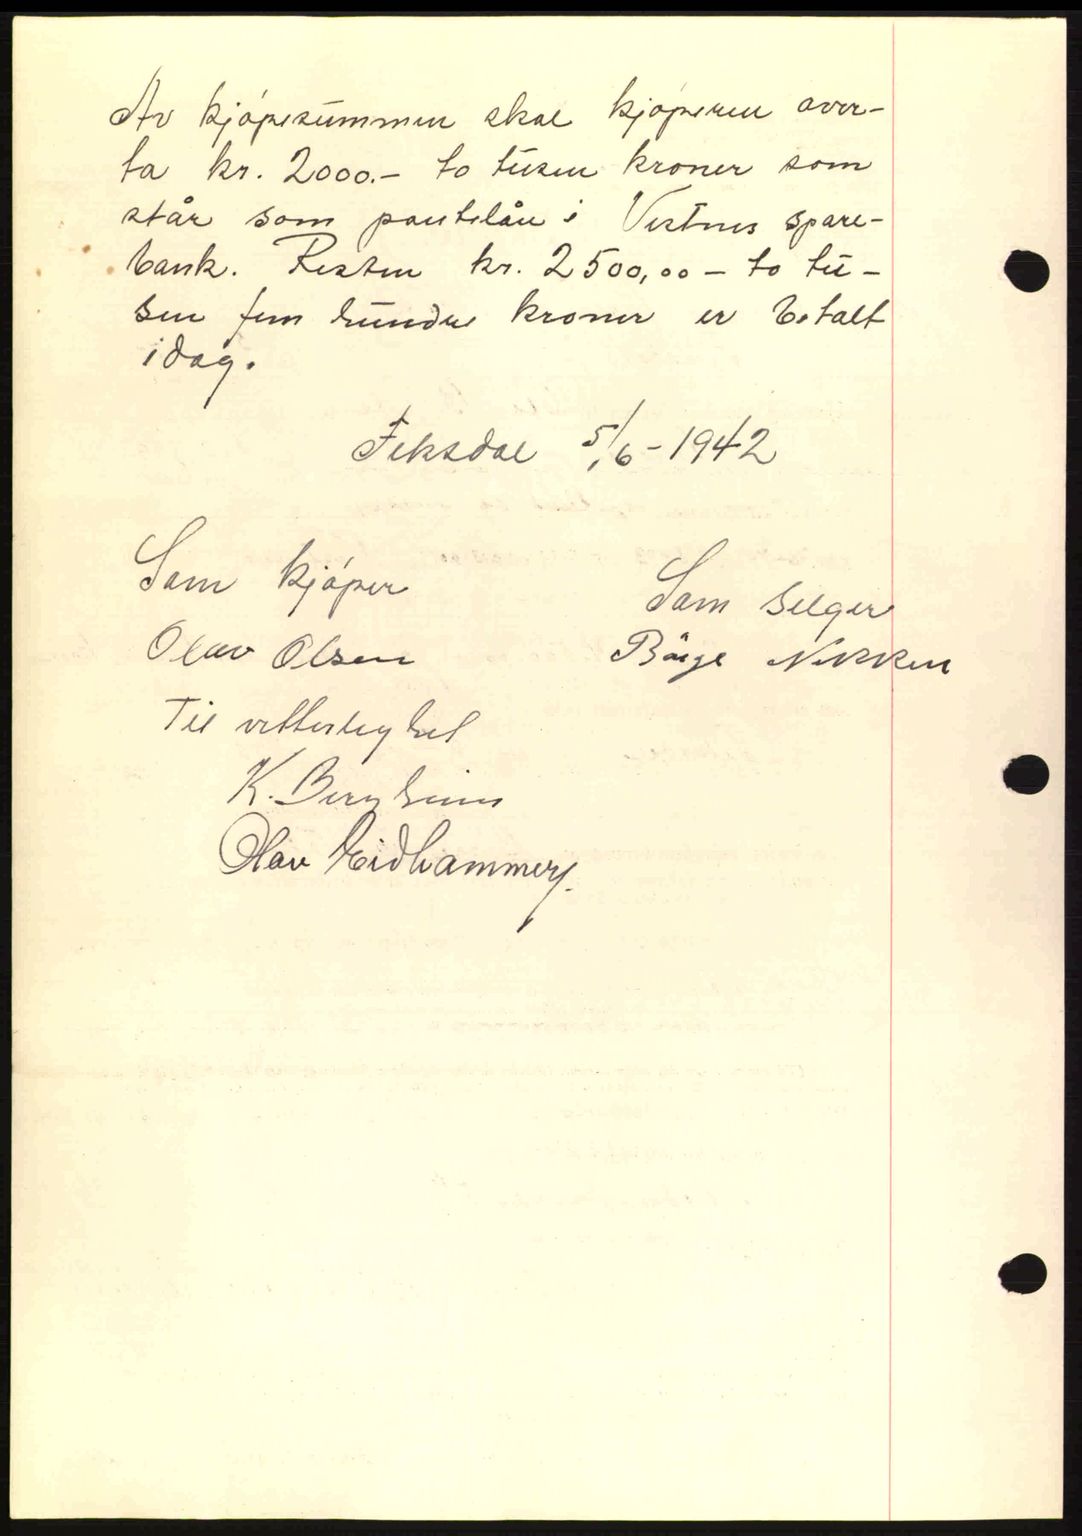 Av kjøpesummen skal kjøperen over-
ta kr. 2000.- to tusen kroner som
står som pantelån i Vestnes spare-
bank. Resten kr. 2500,00 - to tu-
sen fem hundre kroner er betalt
idag.
Feksdal 5/6-1942
Som kjøper
Som selger
Olav Olsen
Børge Nekken
Til vitterlighet
K. Bergheim
Olav Eidhammer.